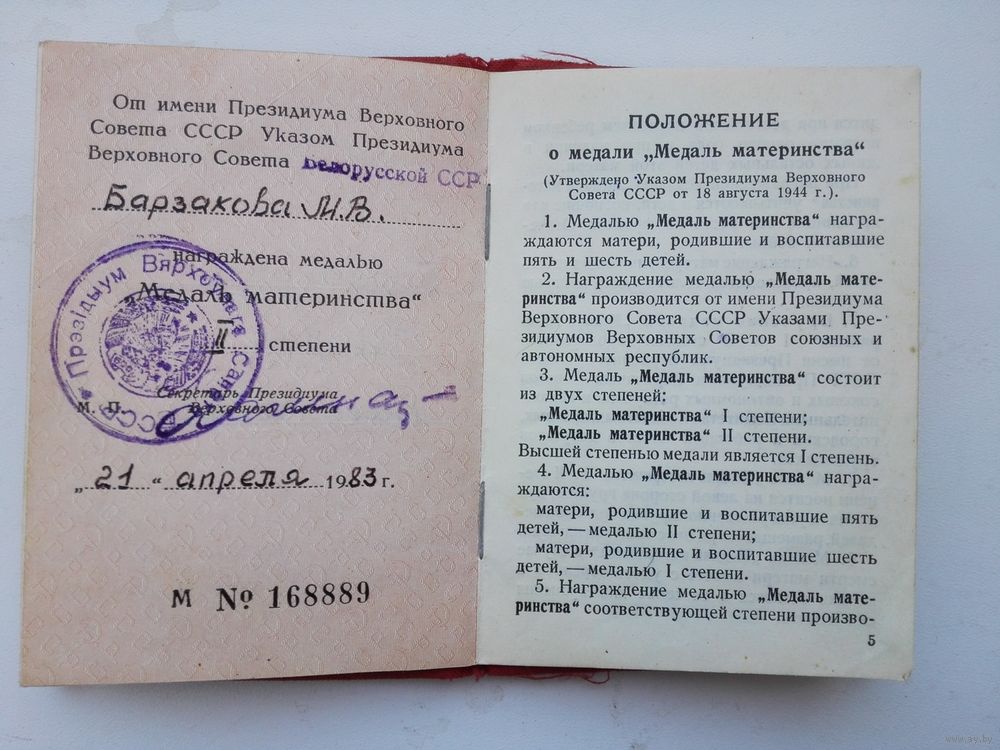 От имени Президиума Верховного
Совета СССР Указом Президиума
Верховного Совета Белорусской ССР
Барзакова М.В.
награждена медалью
„Медаль материнства“
II степени
Секретарь Президиума
Верховного Совета
М. П.
Прэзідыум Вярхоўнага Савета
БССР
„21“ апреля 1983 г.
М № 168889
ПОЛОЖЕНИЕ
о медали „Медаль материнства“
(Утверждено Указом Президиума Верховного
Совета СССР от 18 августа 1944 г.).
1. Медалью „Медаль материнства“ награ-
ждаются матери, родившие и воспитавшие
пять и шесть детей.
2. Награждение медалью „Медаль мате-
ринства“ производится от имени Президиума
Верховного Совета СССР Указами Пре-
зидиумов Верховных Советов союзных и
автономных республик.
3. Медаль „Медаль материнства“ состоит
из двух степеней:
„Медаль материнства“ I степени;
„Медаль материнства“ II степени.
Высшей степенью медали является I степень.
4. Медалью „Медаль материнства“ награ-
ждаются:
матери, родившие и воспитавшие пять
детей, — медалью II степени;
матери, родившие и воспитавшие шесть
детей, — медалью I степени.
5. Награждение медалью „Медаль мате-
ринства“ соответствующей степени произво-
5
www.ay.by